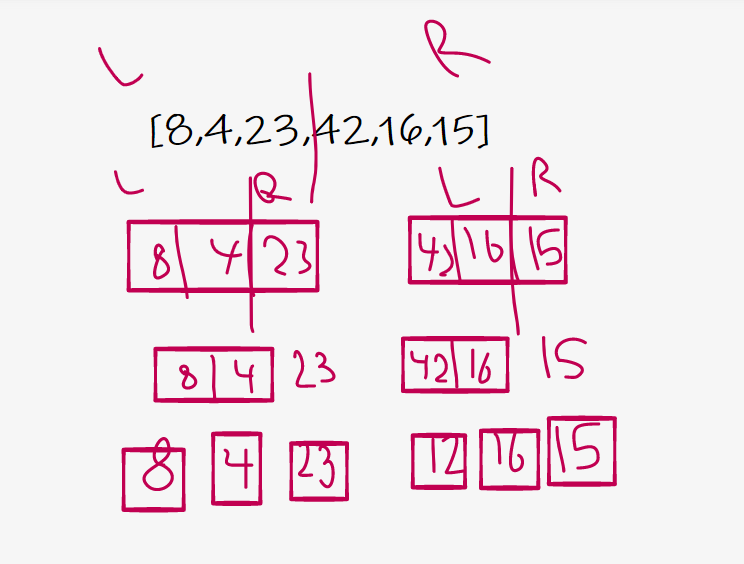 L R
[8,4,23,42,16,15]
L R L R
8 4 23 42 16 15
8 4 23 42 16 15
8 4 23 12 16 15